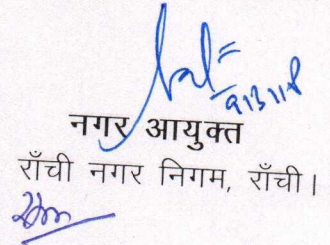 नगर आयुक्त
राँची नगर निगम, राँची।